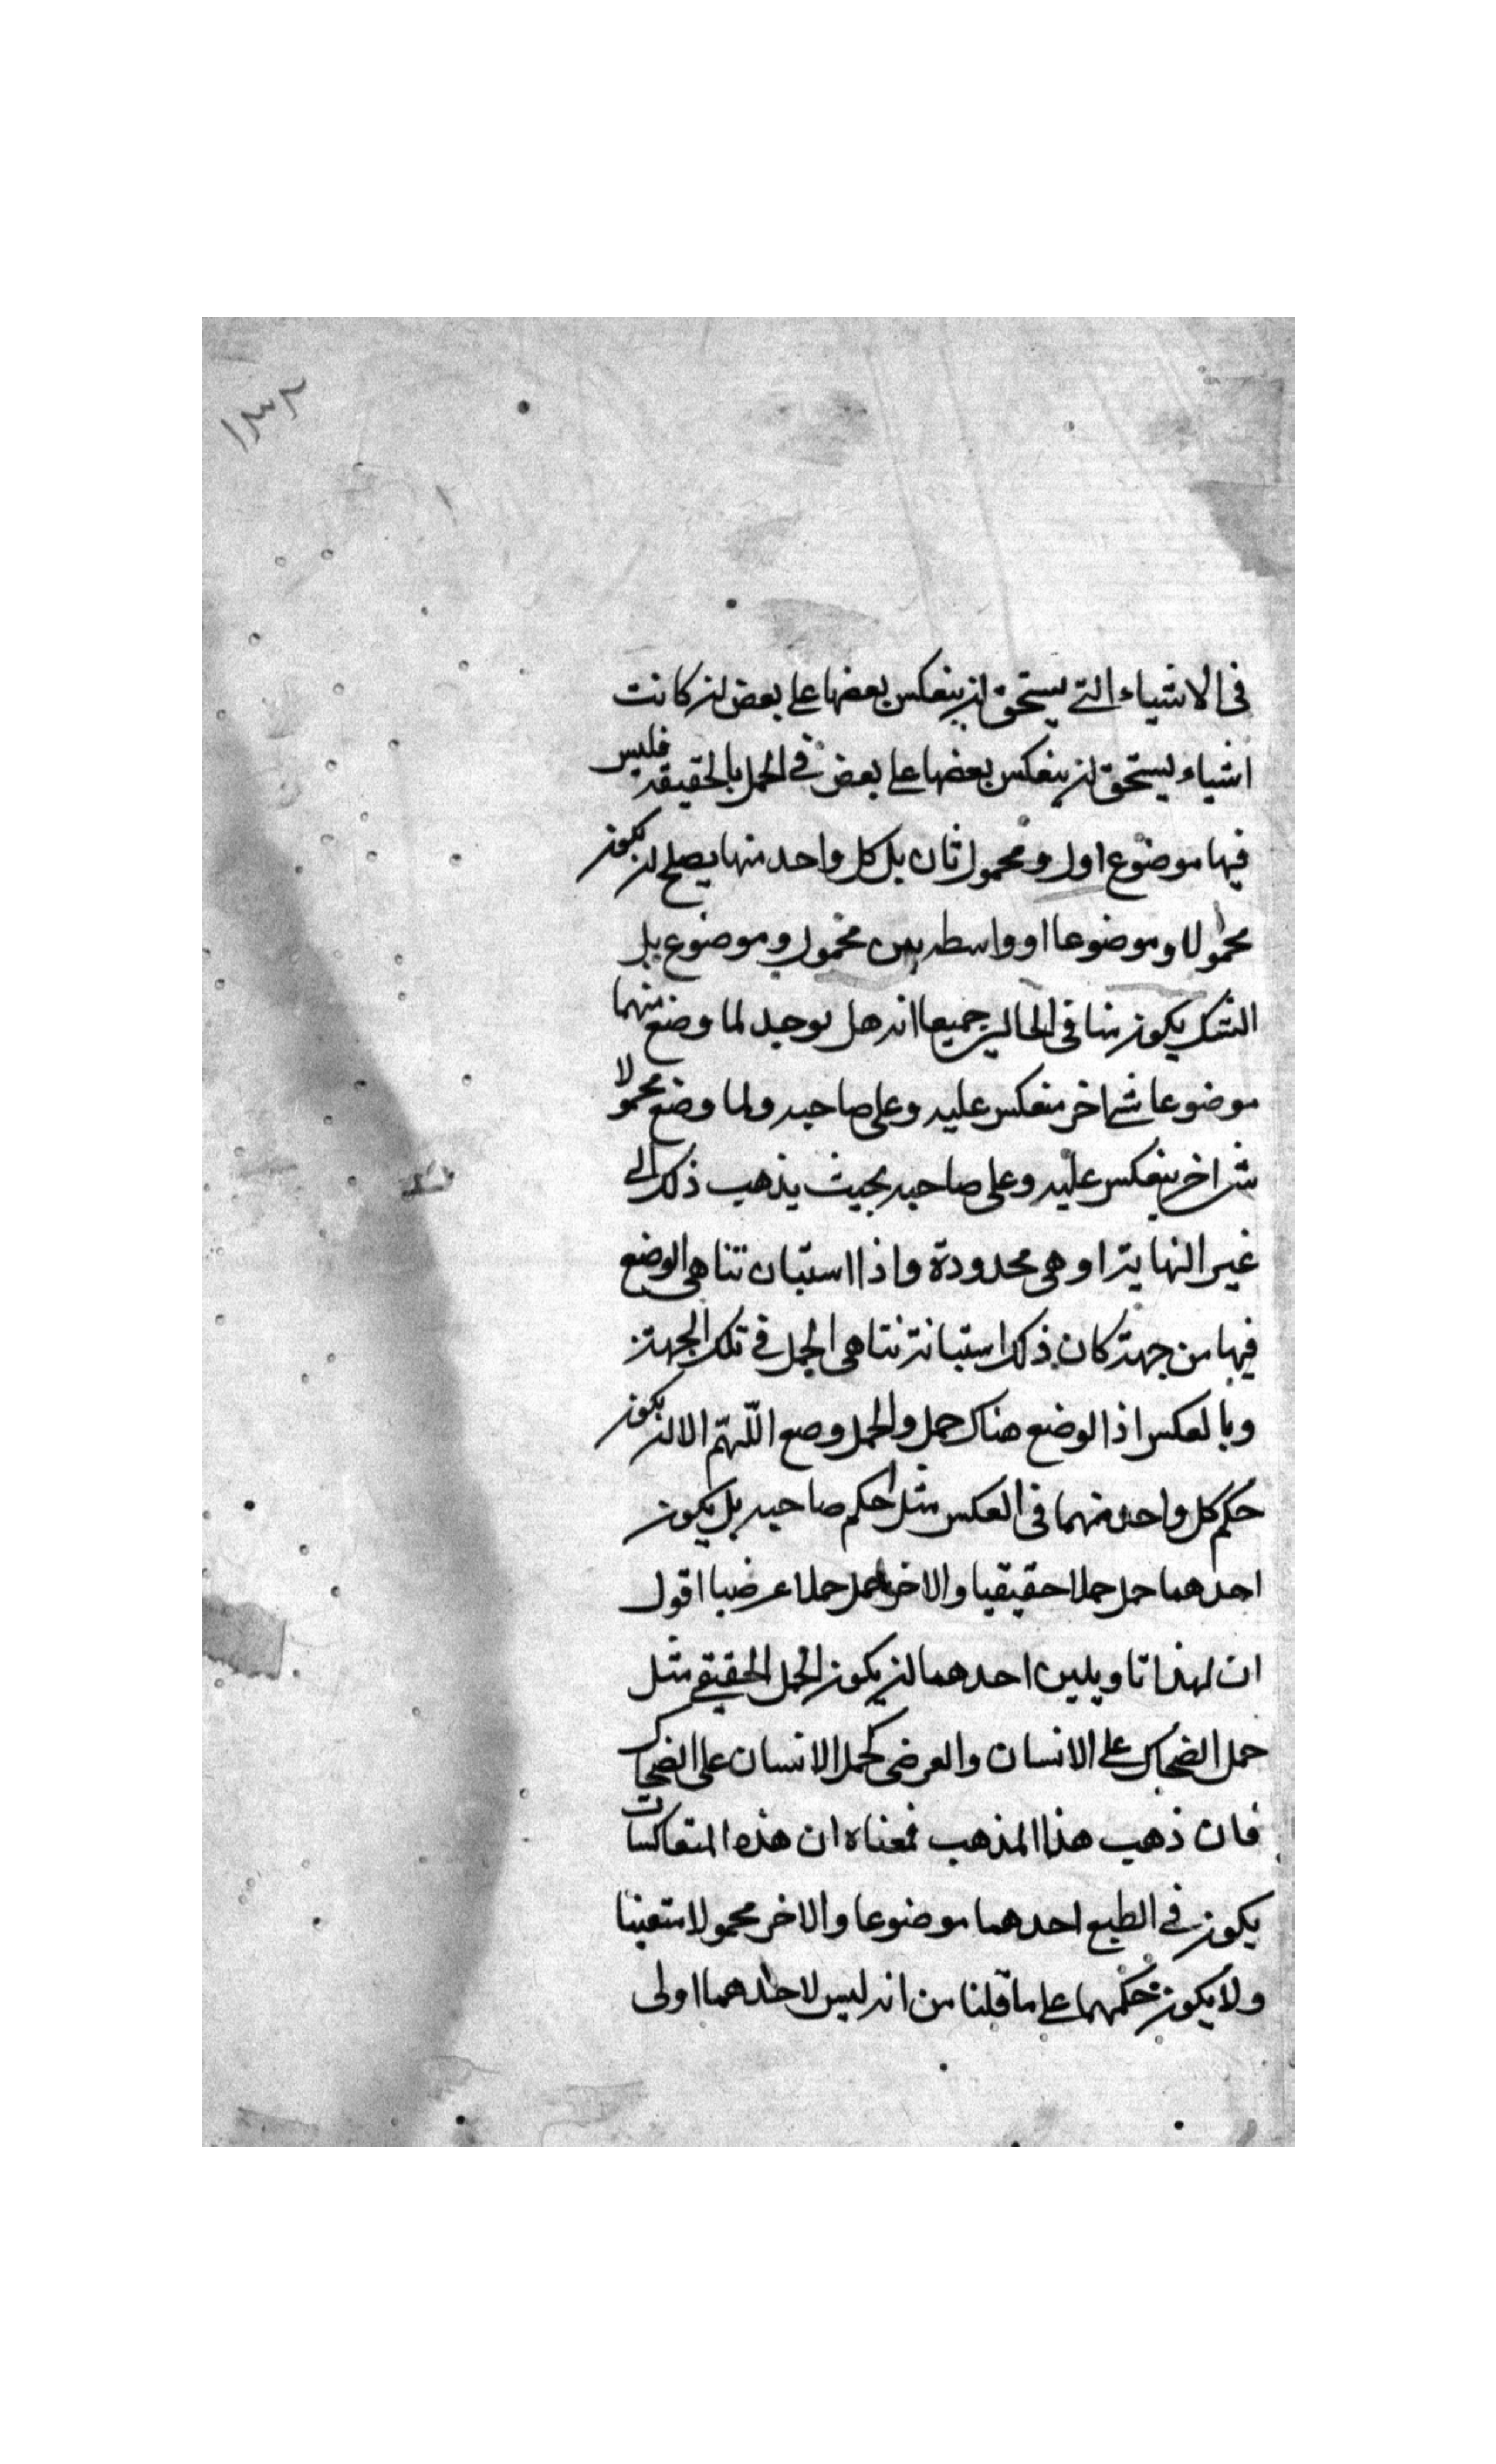 ١٣٢
فى الاشياء التى يستحق ان ينعكس بعضها على بعض ان كانت
اشياء يستحق ان ينعكس بعضها على بعض فى الحمل بالحقيقة فليس
فيها موضوع اول ومحمول ثان بل كل واحد منها يصلح ان يكون
محمولا وموضوعا او واسطه بين محمول وموضوع بل
الشك يكون منا فى الحالين جميعا انه هل يوجد لما وضع منهما
موضوعا شئ اخر منعكس عليه وعلى صاحبه ولما وضع محمولا
شئ اخر ينعكس عليه وعلى صاحبه بحيث يذهب ذلك الى
غير النهاية او هى محدودة واذا استبان تناهى الوضع
فيها من جهة كان ذلك استبانة تناهى الحمل فى تلك الجهة
وبالعكس اذ الوضع هناك حمل والحمل وضع اللّهمّ الا ان يكون
حكم كل واحد منهما فى العكس مثل حكم صاحبه بل يكون
احدهما حمل حملا حقيقيا والاخر حمل حملا عرضيا اقول
ان لهذا تاويلين احدهما ان يكون الحمل الحقيقى مثل
حمل الضحاك على الانسان والعرضى كحمل الانسان على الضحاك
فان ذهب هذا المذهب فمعناه ان هذه المتعاكسات
يكون فى الطبع احدهما موضوعا والاخر محمولا متعينا
ولا يكون حكمهما على ما قلنا من انه ليس لاحدهما اولى